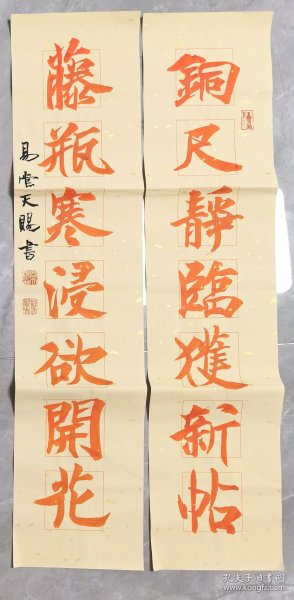 銅尺靜臨獲新帖
藤瓶寒浸欲開花
易雲天賜書
孔夫子旧书网
www.kongfz.com